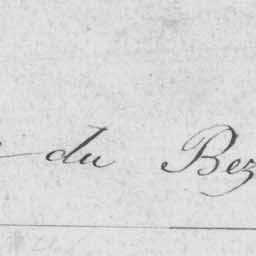 du Bez